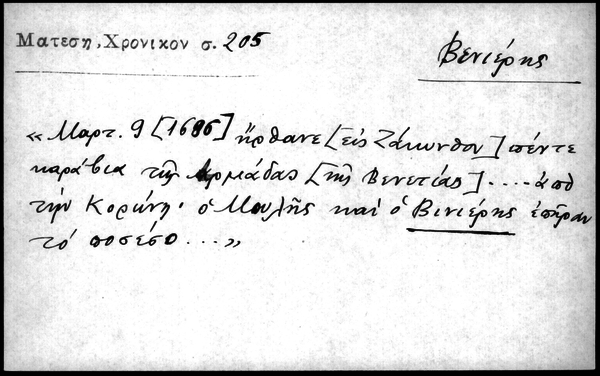 Ματεση, Χρονικον σ. 205
Βενιέρης
« Μαρτ. 9 [1686] ἤρθανε [εἰς Ζάκυνθον] πέντε
καράβια τῆς Ἀρμάδας [τῆς Βενετίας] .... ἀπὸ
τὴν Κορώνη· ὁ Μουλῆς καὶ ὁ Βινιέρης ἐπῆραν
τὸ ποσέσο ... »